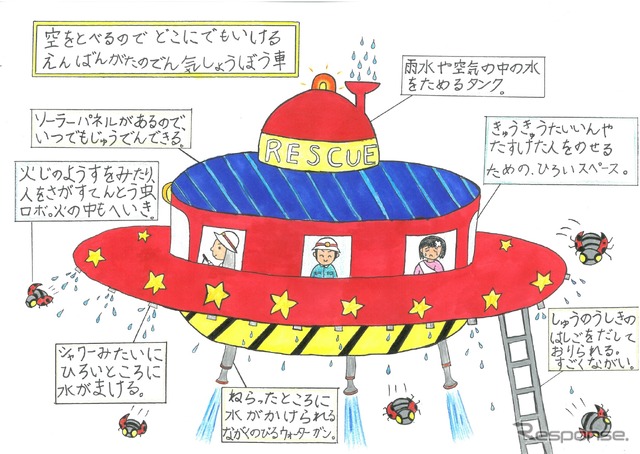 空をとべるので どこにでもいける
えんばんがたのでん気しょうぼう車
雨水や空気の中の水
をためるタンク。
ソーラーパネルがあるので、
いつでもじゅうでんできる。
きゅうきゅうたいいんや
たすけた人をのせる
ための、ひろいスペース。
火じのようすをみたり、
人をさがすてんとう虫
ロボ。火の中もへいき。
RESCUE
しゅうのうしきの
はしごをだして
おりられる。
すごくながい。
シャワーみたいに
ひろいところに
水がまける。
ねらったところに
水がかけられる
ながくのびるウォーターガン。
Response.